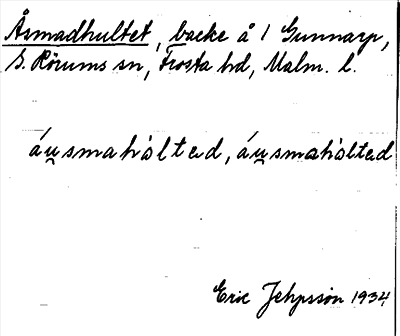 Åsmadhultet, backe å 1 Gunnarp,
S. Rörums sn, Frosta hd, Malm. l.
áu̯smahòltəd, áu̯smahòltəd
Eric Jehpsson 1934